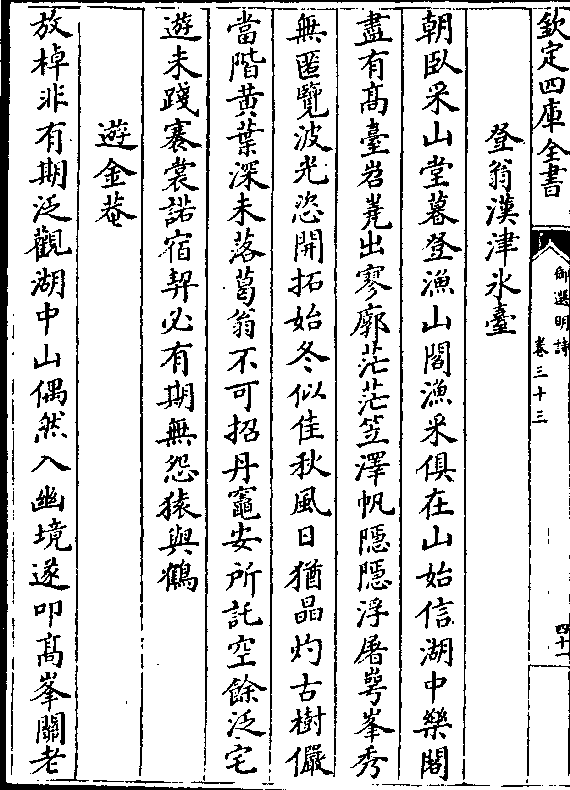 欽定四庫全書
御選明詩
卷三十三
四十一
登翁漢津氷臺
朝臥采山堂暮登漁山閣漁采俱在山始信湖中樂閣
盡有髙臺岧嶤出寥廓茫茫笠澤帆隱隱浮屠蕚峯秀
無匿覽波光恣開拓始冬似佳秋風日猶晶灼古樹儼
當階黄葉深未落葛翁不可招丹竈安所託空餘泛宅
遊未踐褰裳諾宿契必有期無怨猿與鶴
遊金菴
放棹非有期泛觀湖中山偶然入幽境遂叩髙峯關老